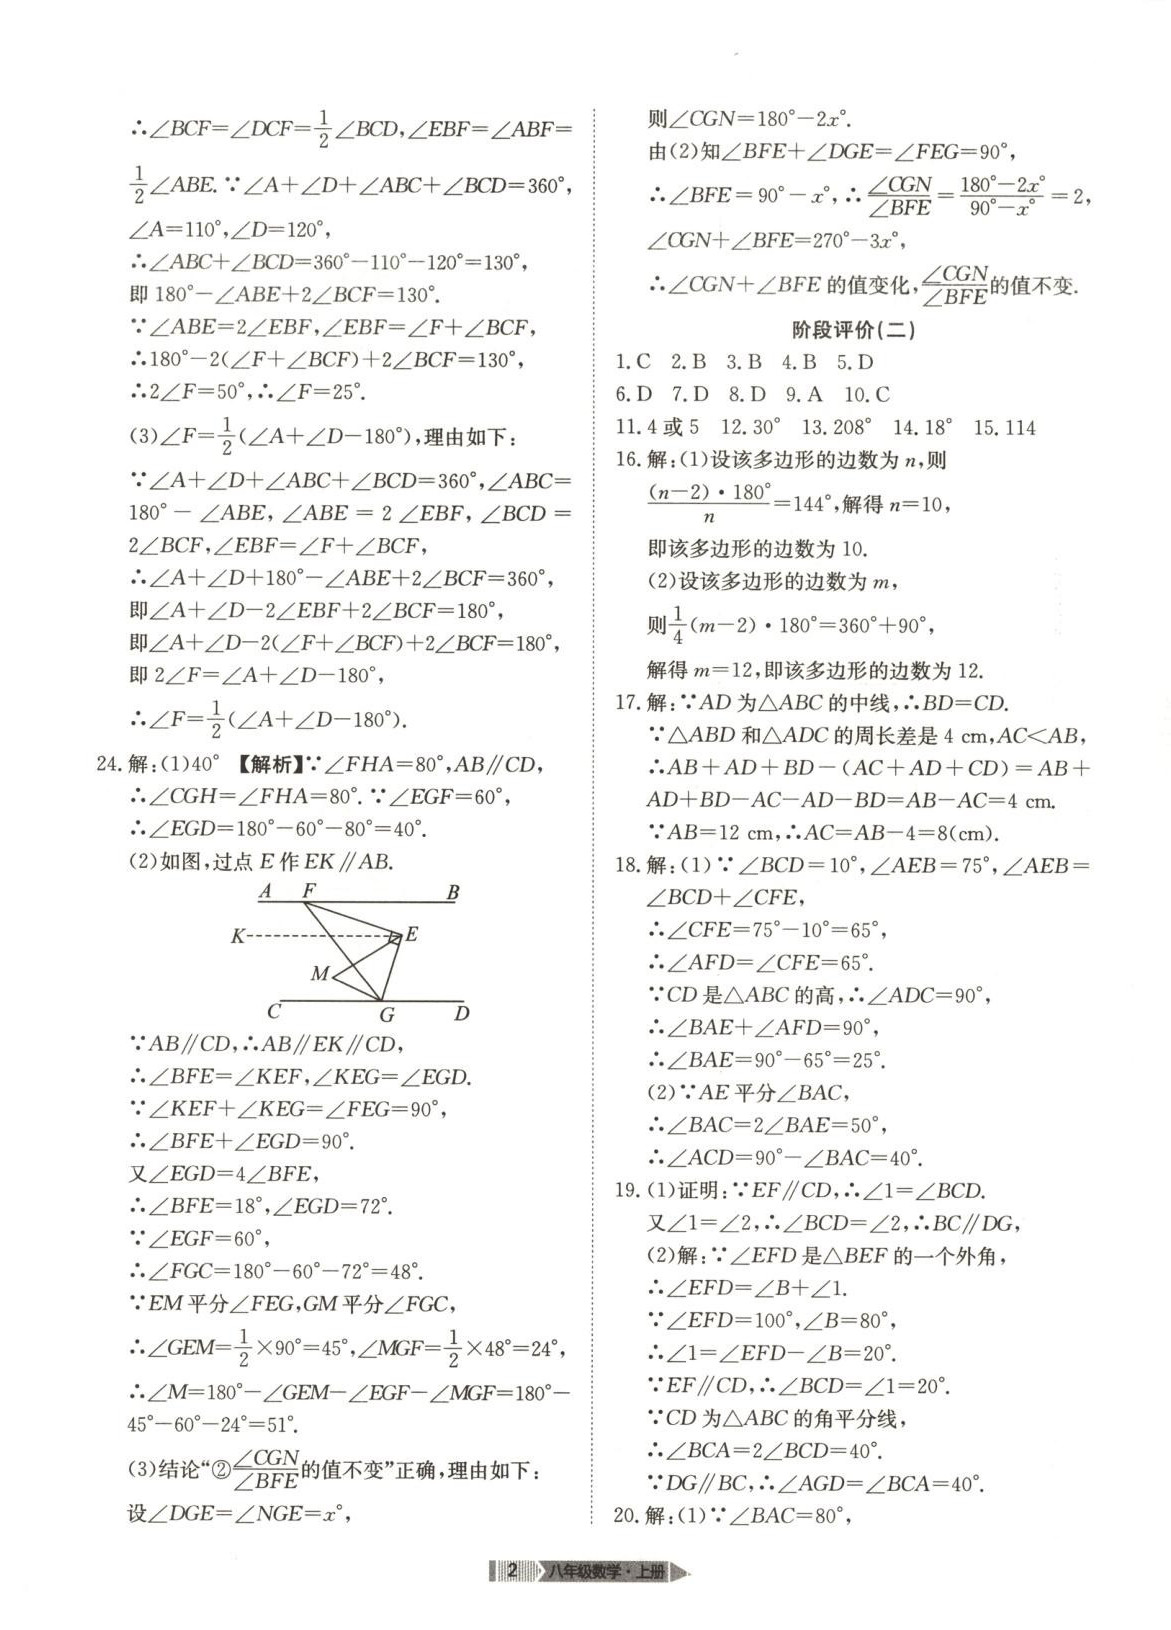 ∴∠BCF=∠DCF=1/2∠BCD,∠EBF=∠ABF=
1/2∠ABE.∵∠A+∠D+∠ABC+∠BCD=360°,
∠A=110°,∠D=120°,
∴∠ABC+∠BCD=360°-110°-120°=130°,
即 180°-∠ABE+2∠BCF=130°.
∵∠ABE=2∠EBF,∠EBF=∠F+∠BCF,
∴180°-2(∠F+∠BCF)+2∠BCF=130°,
∴2∠F=50°,∴∠F=25°.
(3)∠F=1/2(∠A+∠D-180°),理由如下:
∵∠A+∠D+∠ABC+∠BCD=360°,∠ABC=
180°-∠ABE,∠ABE=2∠EBF,∠BCD=
2∠BCF,∠EBF=∠F+∠BCF,
∴∠A+∠D+180°-∠ABE+2∠BCF=360°,
即∠A+∠D-2∠EBF+2∠BCF=180°,
即∠A+∠D-2(∠F+∠BCF)+2∠BCF=180°,
即 2∠F=∠A+∠D-180°,
∴∠F=1/2(∠A+∠D-180°).
24.解:(1)40° 【解析】∵∠FHA=80°,AB∥CD,
∴∠CGH=∠FHA=80°.∵∠EGF=60°,
∴∠EGD=180°-60°-80°=40°.
(2)如图,过点 E 作 EK∥AB.
A F B
K E
M
C G D
∵AB∥CD,∴AB∥EK∥CD,
∴∠BFE=∠KEF,∠KEG=∠EGD.
∵∠KEF+∠KEG=∠FEG=90°,
∴∠BFE+∠EGD=90°.
又∠EGD=4∠BFE,
∴∠BFE=18°,∠EGD=72°.
∵∠EGF=60°,
∴∠FGC=180°-60°-72°=48°.
∵EM 平分∠FEG,GM 平分∠FGC,
∴∠GEM=1/2×90°=45°,∠MGF=1/2×48°=24°,
∴∠M=180°-∠GEM-∠EGF-∠MGF=180°-
45°-60°-24°=51°.
(3)结论“②∠CGN/∠BFE的值不变”正确,理由如下:
设∠DGE=∠NGE=x°,
则∠CGN=180°-2x°.
由(2)知∠BFE+∠DGE=∠FEG=90°,
∴∠BFE=90°-x°,∴∠CGN/∠BFE=(180°-2x°)/(90°-x°)=2,
∠CGN+∠BFE=270°-3x°,
∴∠CGN+∠BFE 的值变化,∠CGN/∠BFE的值不变.
阶段评价(二)
1.C 2.B 3.B 4.B 5.D
6.D 7.D 8.D 9.A 10.C
11.4 或 5 12.30° 13.208° 14.18° 15.114
16.解:(1)设该多边形的边数为 n,则
(n-2)·180°/n=144°,解得 n=10,
即该多边形的边数为 10.
(2)设该多边形的边数为 m,
则1/4(m-2)·180°=360°+90°,
解得 m=12,即该多边形的边数为 12.
17.解:∵AD 为△ABC 的中线,∴BD=CD.
∵△ABD 和△ADC 的周长差是 4 cm,AC<AB,
∴AB+AD+BD-(AC+AD+CD)=AB+
AD+BD-AC-AD-BD=AB-AC=4 cm.
∵AB=12 cm,∴AC=AB-4=8(cm).
18.解:(1)∵∠BCD=10°,∠AEB=75°,∠AEB=
∠BCD+∠CFE,
∴∠CFE=75°-10°=65°,
∴∠AFD=∠CFE=65°.
∵CD 是△ABC 的高,∴∠ADC=90°,
∴∠BAE+∠AFD=90°,
∴∠BAE=90°-65°=25°.
(2)∵AE 平分∠BAC,
∴∠BAC=2∠BAE=50°,
∴∠ACD=90°-∠BAC=40°.
19.(1)证明:∵EF∥CD,∴∠1=∠BCD.
又∠1=∠2,∴∠BCD=∠2,∴BC∥DG,
(2)解:∵∠EFD 是△BEF 的一个外角,
∴∠EFD=∠B+∠1.
∵∠EFD=100°,∠B=80°,
∴∠1=∠EFD-∠B=20°.
∵EF∥CD,∴∠BCD=∠1=20°.
∵CD 为△ABC 的角平分线,
∴∠BCA=2∠BCD=40°.
∵DG∥BC,∴∠AGD=∠BCA=40°.
20.解:(1)∵∠BAC=80°,
2 八年级数学·上册